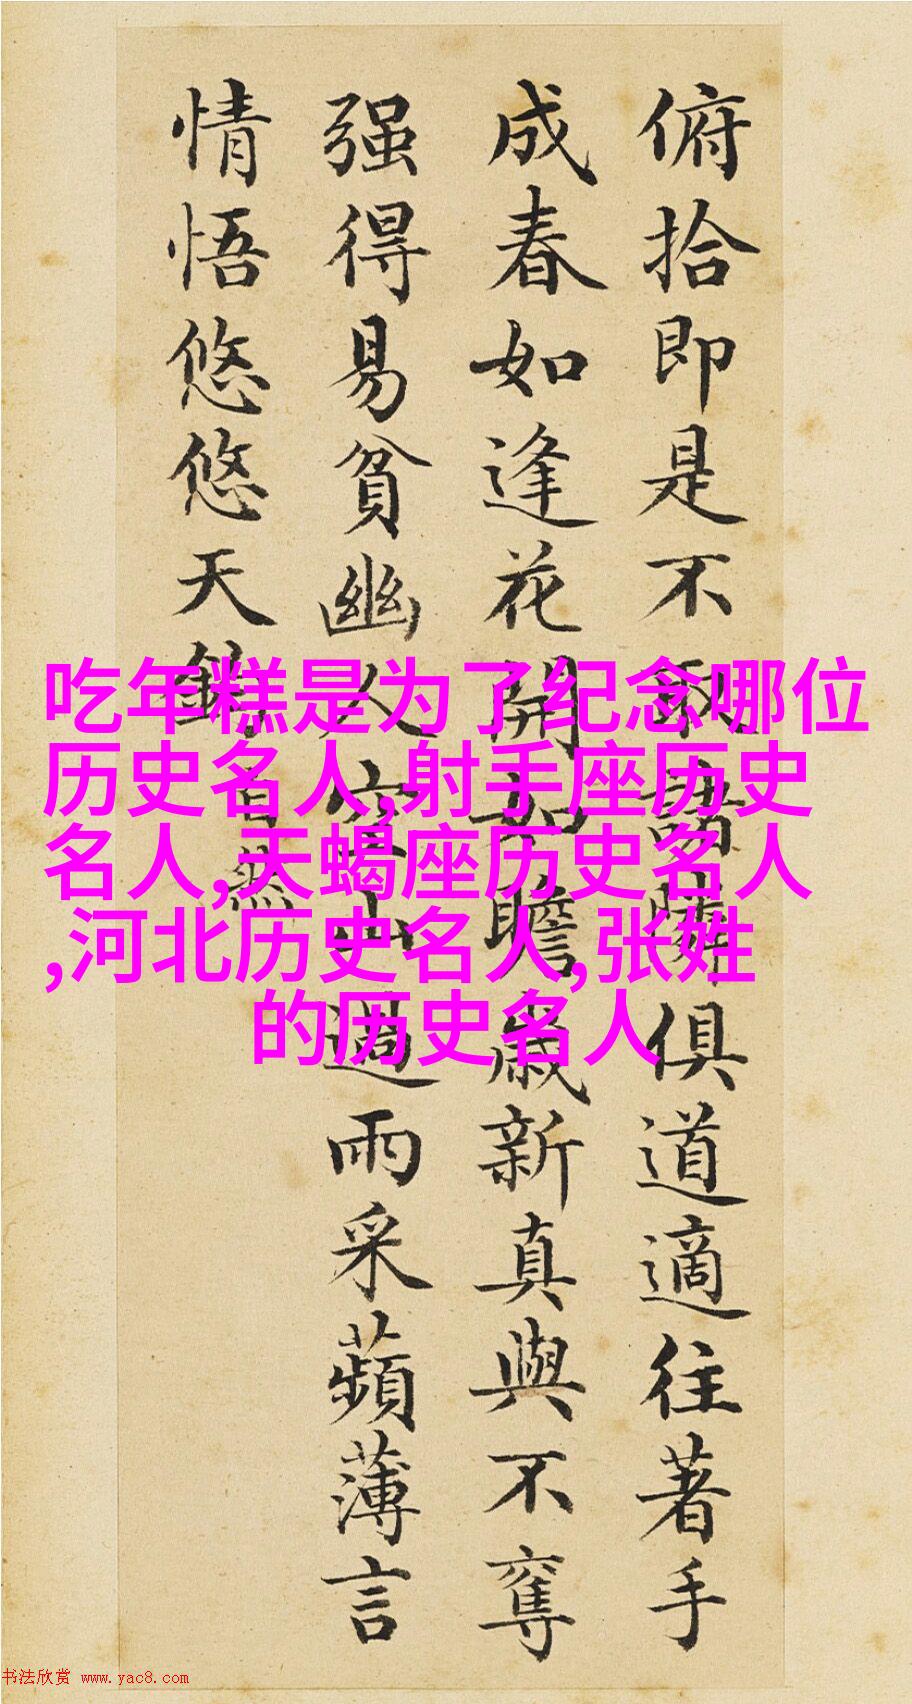 俯拾即是不取諸隣俱道適往著手
成春如逢花開如瞻歲新真與不奪
强得易貧幽人空山過雨采蘋薄言
情悟悠悠天鈞自然
吃年糕是为了纪念哪位
历史名人,射手座历史
名人,天蝎座历史名人
,河北历史名人,张姓
的历史名人
书法欣赏 www.yac8.com